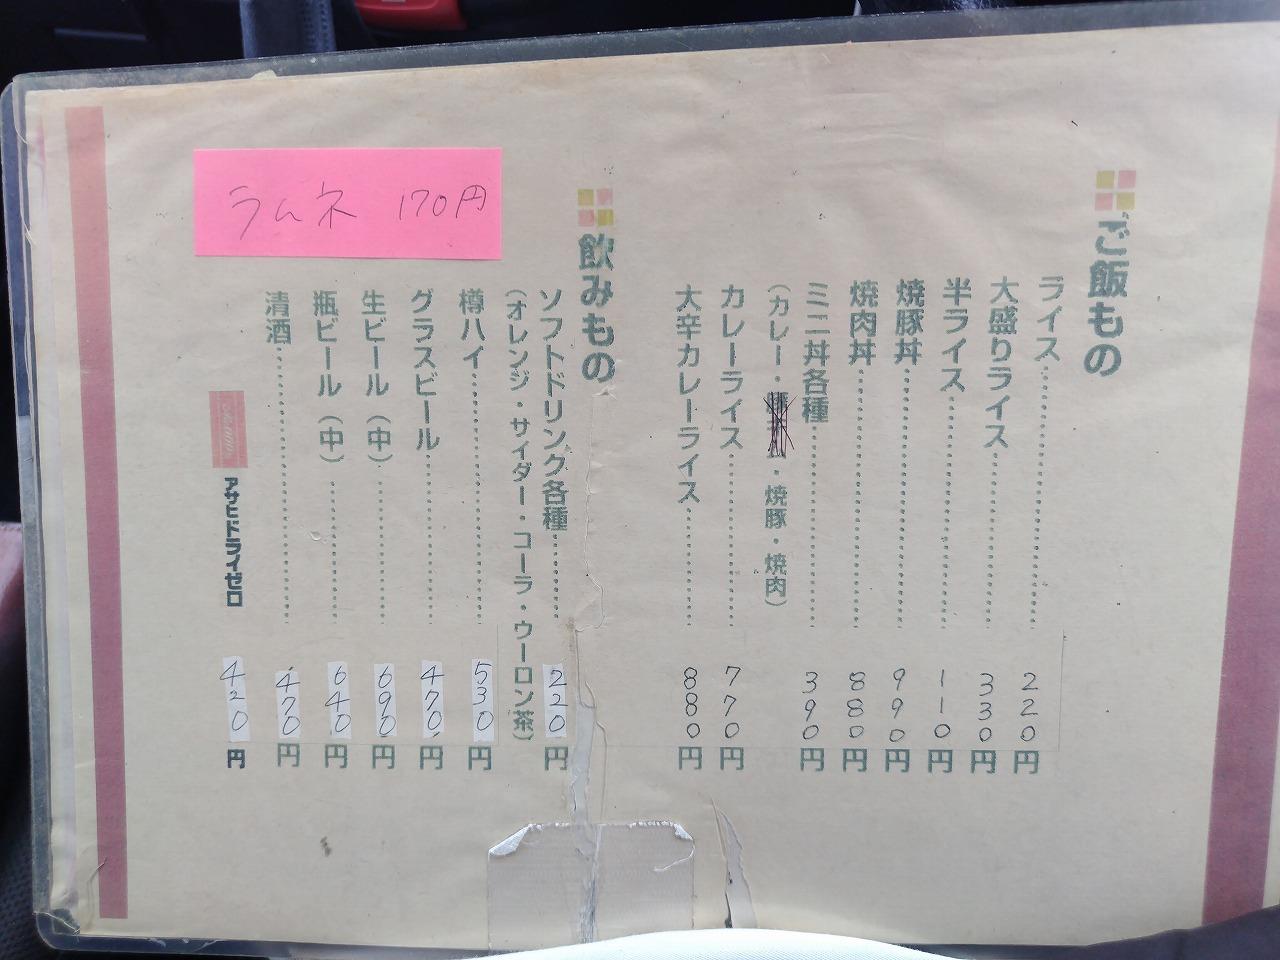 ご飯もの
ライス 220円
大盛りライス 330円
半ライス 110円
焼豚丼 990円
焼肉丼 880円
ミニ丼各種 390円
(カレー・・焼豚・焼肉)
カレーライス 770円
大辛カレーライス 880円
飲みもの
ソフトドリンク各種 220円
(オレンジ・サイダー・コーラ・ウーロン茶)
樽ハイ 530円
グラスビール 470円
生ビール(中) 690円
瓶ビール(中) 640円
清酒 470円
アサヒドライゼロ 420円
ラムネ 170円